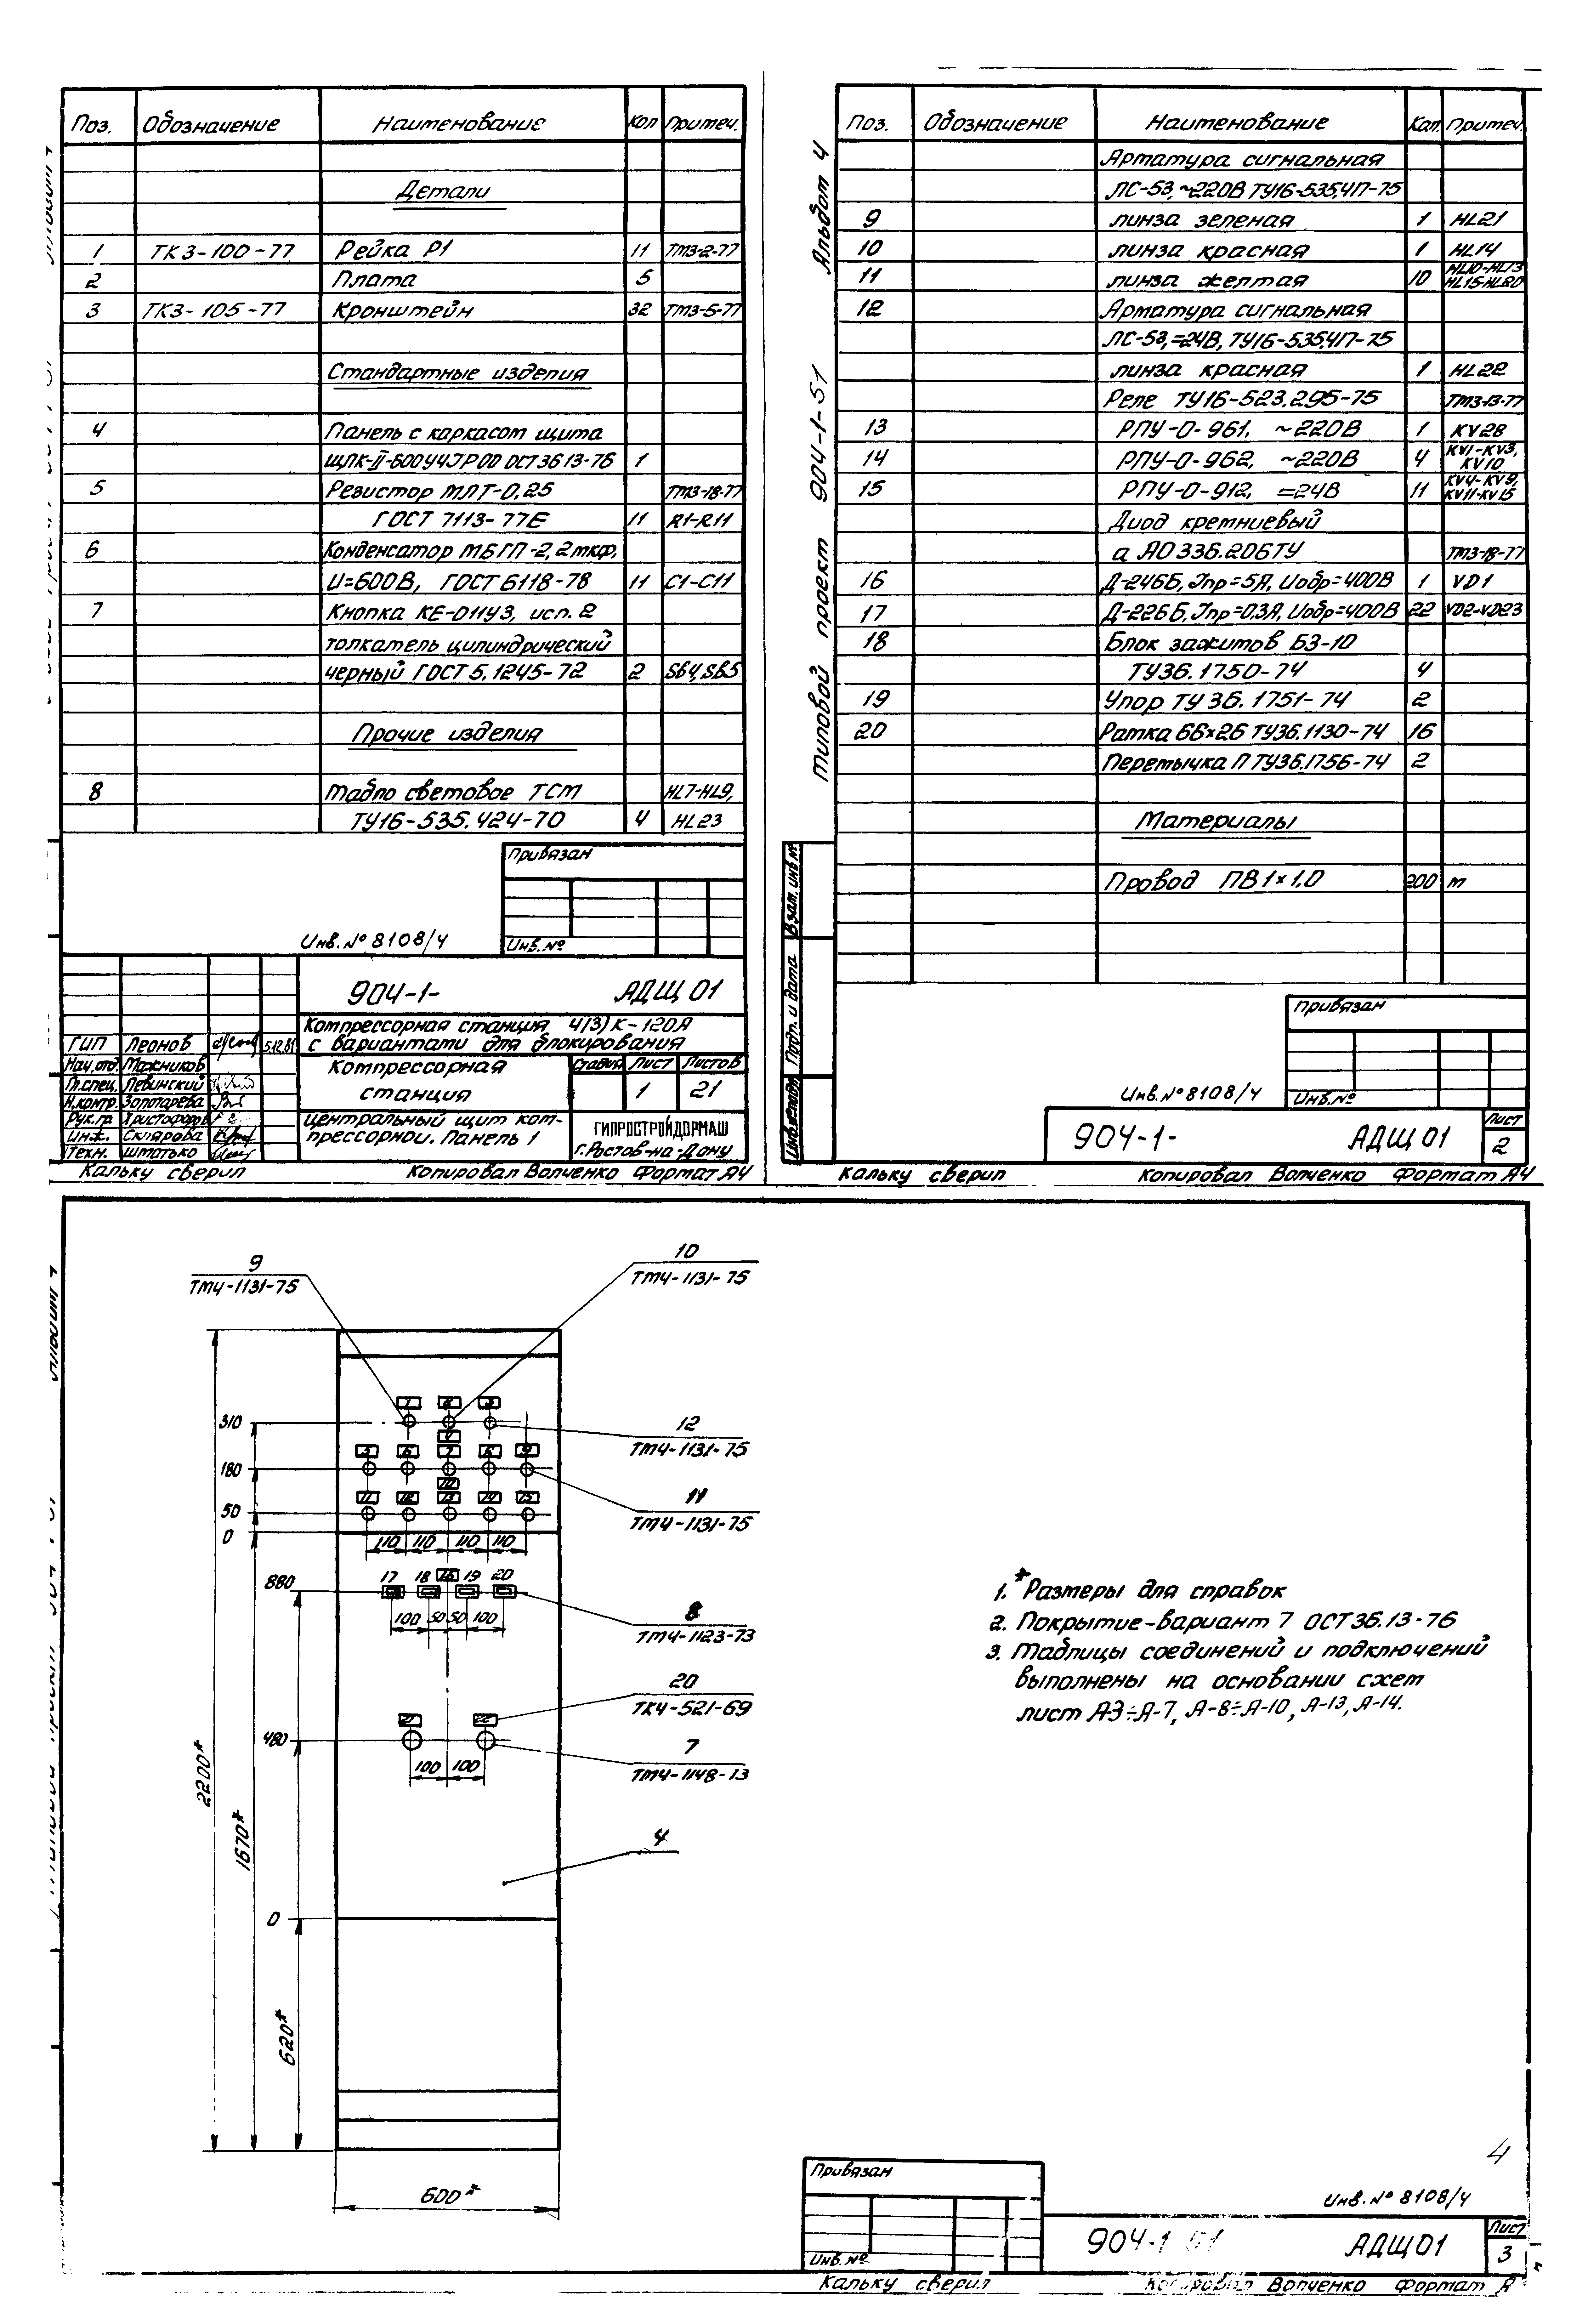 Поз. Обозначение Наименование Кол Примеч.
Детали
1 ТК3-100-77 Рейка Р1 11 ТМ3-2-77
2 Плата 5
3 ТК3-105-77 Кронштейн 32 ТМ3-5-77
Стандартные изделия
4 Панель с каркасом щита
ЩПК-II-600 УЧ IР00 ОСТ 36 13-76 1
5 Резистор МЛТ-0,25 ТМ3-18-77
ГОСТ 7113-77Е 11 R1-R11
6 Конденсатор МБГП-2, 2мкф,
U=600В, ГОСТ 6118-78 11 С1-С11
7 Кнопка КЕ-011У3, исп. 2
толкатель цилиндрический
черный ГОСТ 5.1245-72 2 SB4, SB5
Прочие изделия
8 Табло световое ТСМ HL7-HL9,
ТУ16-535.424-70 4 HL23
Привязан
Инв. №
Инв. № 8108/4
904-1- АДЩ 01
Компрессорная станция 4(3)К-120А
с вариантами для блокирования
ГИП Леонов 5.12.81
Нач.отд. Мажников
Гл.спец. Левинский
Н.контр. Золотарева
Рук.гр Христофоров
Инж. Склярова
Техн. Шматько
Компрессорная
станция
Стадия Лист Листов
1 21
Центральный щит ком-
прессорной. Панель 1
ГИПРОСТРОЙДОРМАШ
г. Ростов-на-Дону
Кальку сверил Копировал Волченко Формат А4
Типовой проект 904-1-51 Альбом 4
Поз. Обозначение Наименование Кол. Примеч.
Арматура сигнальная
ЛС-53, ~220В ТУ16-535.417-75
9 линза зеленая 1 HL21
10 линза красная 1 HL14
11 линза желтая 10 HL10-HL13 HL15-HL20
12 Арматура сигнальная
ЛС-53, =24В, ТУ16-535.417-75
линза красная 1 HL22
Реле ТУ16-523.295-75 ТМ3-13-77
13 РПУ-0-961, ~220В 1 KV28
14 РПУ-0-962, ~220В 4 KV1-KV3, KV10
15 РПУ-0-912, =24В 11 KV4-KV9, KV11-KV15
Диод кремниевый
а А0 336.206ТУ ТМ3-18-77
16 Д-246Б, Jпр=5А, Uобр=400В 1 VD1
17 Д-226Б, Jпр=0,3А, Uобр=400В 22 VD2-VD23
18 Блок зажимов БЗ-10
ТУ36.1750-74 4
19 Упор ТУ 36. 1751-74 2
20 Рамка 66×26 ТУ36.1130-74 16
Перемычка П ТУ36.1756-74 2
Материалы
Провод ПВ 1×1,0 200 м
Взам. инв №
Подп. и дата
Инв.№подл
Привязан
Инв.№
Инв. № 8108/4
904-1- АДЩ 01
Лист
2
Кальку сверил Копировал Волченко Формат А4
9
ТМ4-1131-75
10
ТМ4-1131-75
12
ТМ4-1131-75
11
ТМ4-1131-75
8
ТМ4-1123-73
20
ТК4-521-69
7
ТМ4-1148-73
4
1 2 3
4
5 6 7 8 9
10
11 12 13 14 15
110 110 110 110
17 18 16 19 20
100 50 50 100
21 22
100 100
310
180
50
0
880
480
0
2200*
1670*
620*
600*
1.* Размеры для справок
2. Покрытие-вариант 7 ОСТ 36.13-76
3. Таблицы соединений и подключений
выполнены на основании схем
лист А3÷А-7, А-8÷А-10, А-13, А-14.
4
Привязан
Инв. №
Инв. № 8108/4
904-1 51 АДЩ 01
Лист
3
Кальку сверил Копировал Волченко Формат А